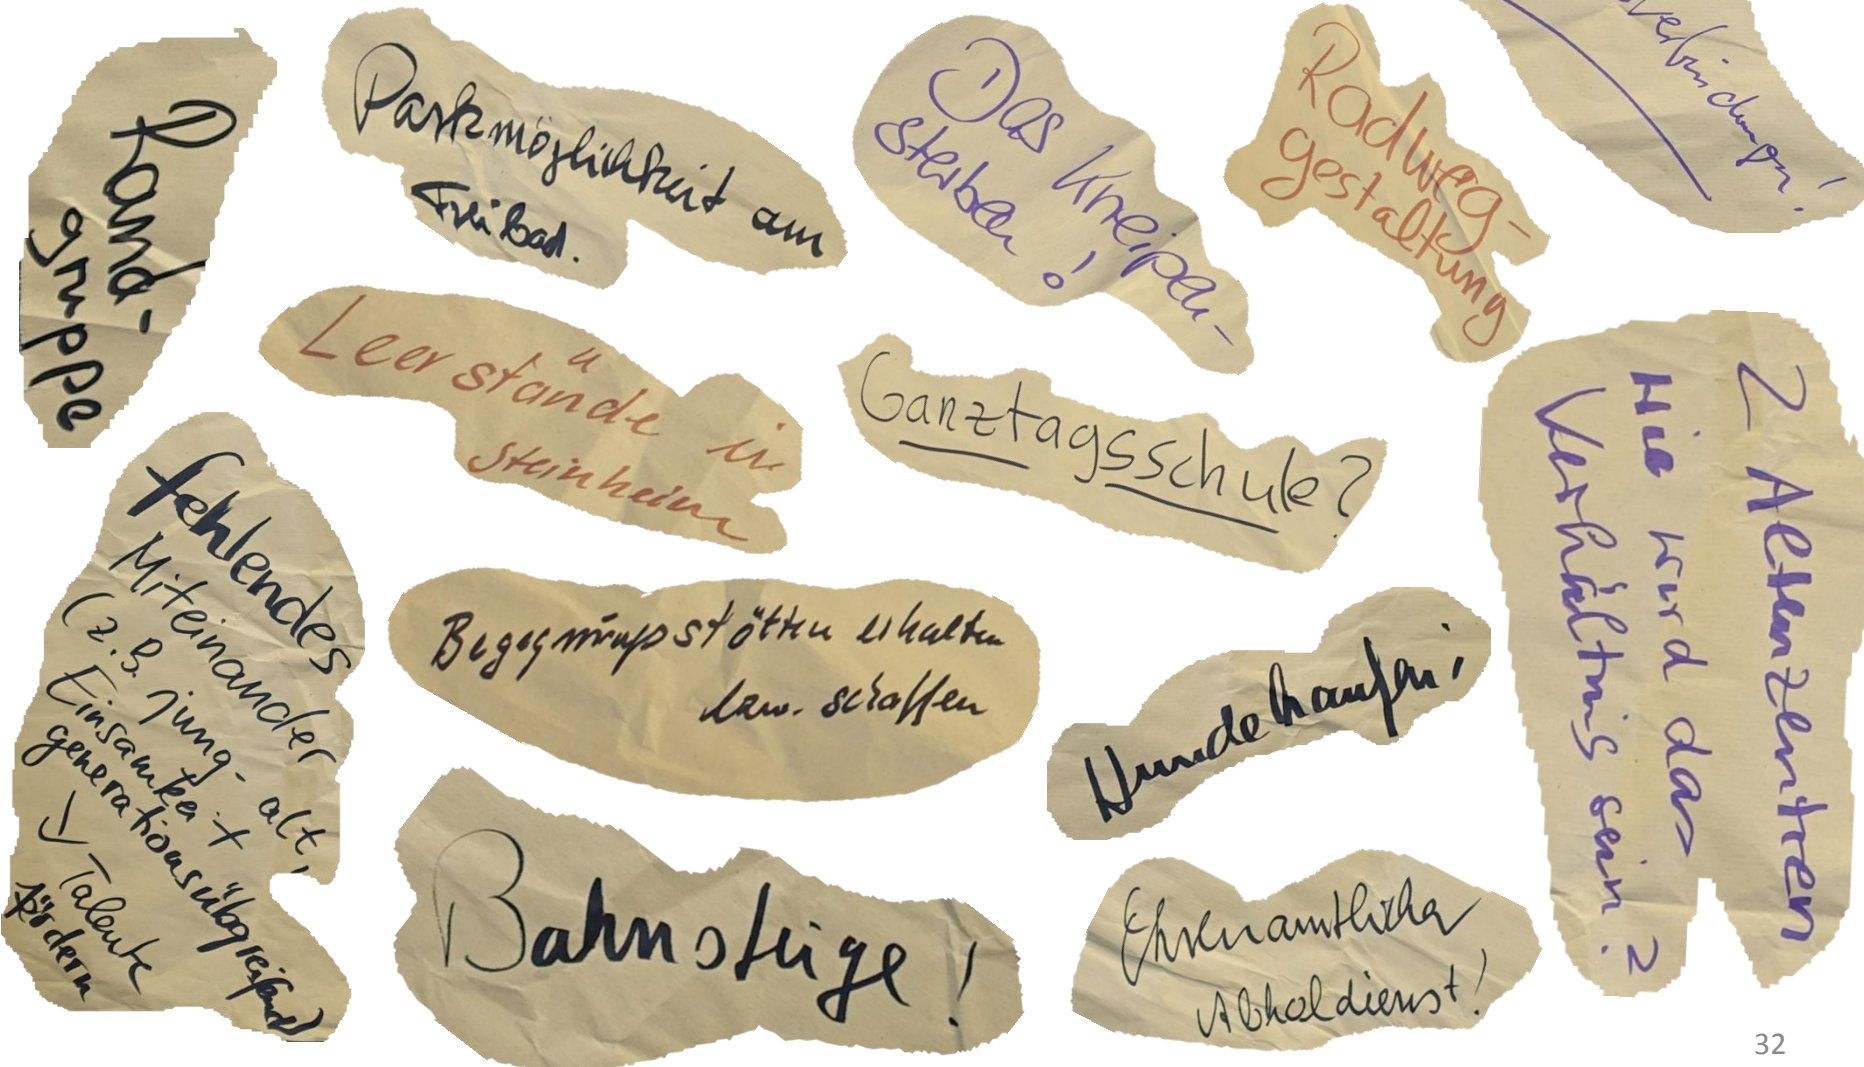 Rand-
gruppe
Parkmöglichkeit am
Freibad.
Das Kneipen-
sterben!
Radweg-
gestaltung
verbindungen!
Leerstände in
Steinheim
Ganztagsschule?
2 Altenzentren
Wie wird das
Verhältnis sein?
fehlendes
Miteinander
(z.B. jung-alt,
Einsamkeit
generationsübgreifend)
→ Talente
fördern
Begegnungsstätten erhalten
bzw. schaffen
Hundehaufen!
Bahnsteige!
Ehrenamtlicher
Abholdienst!
32